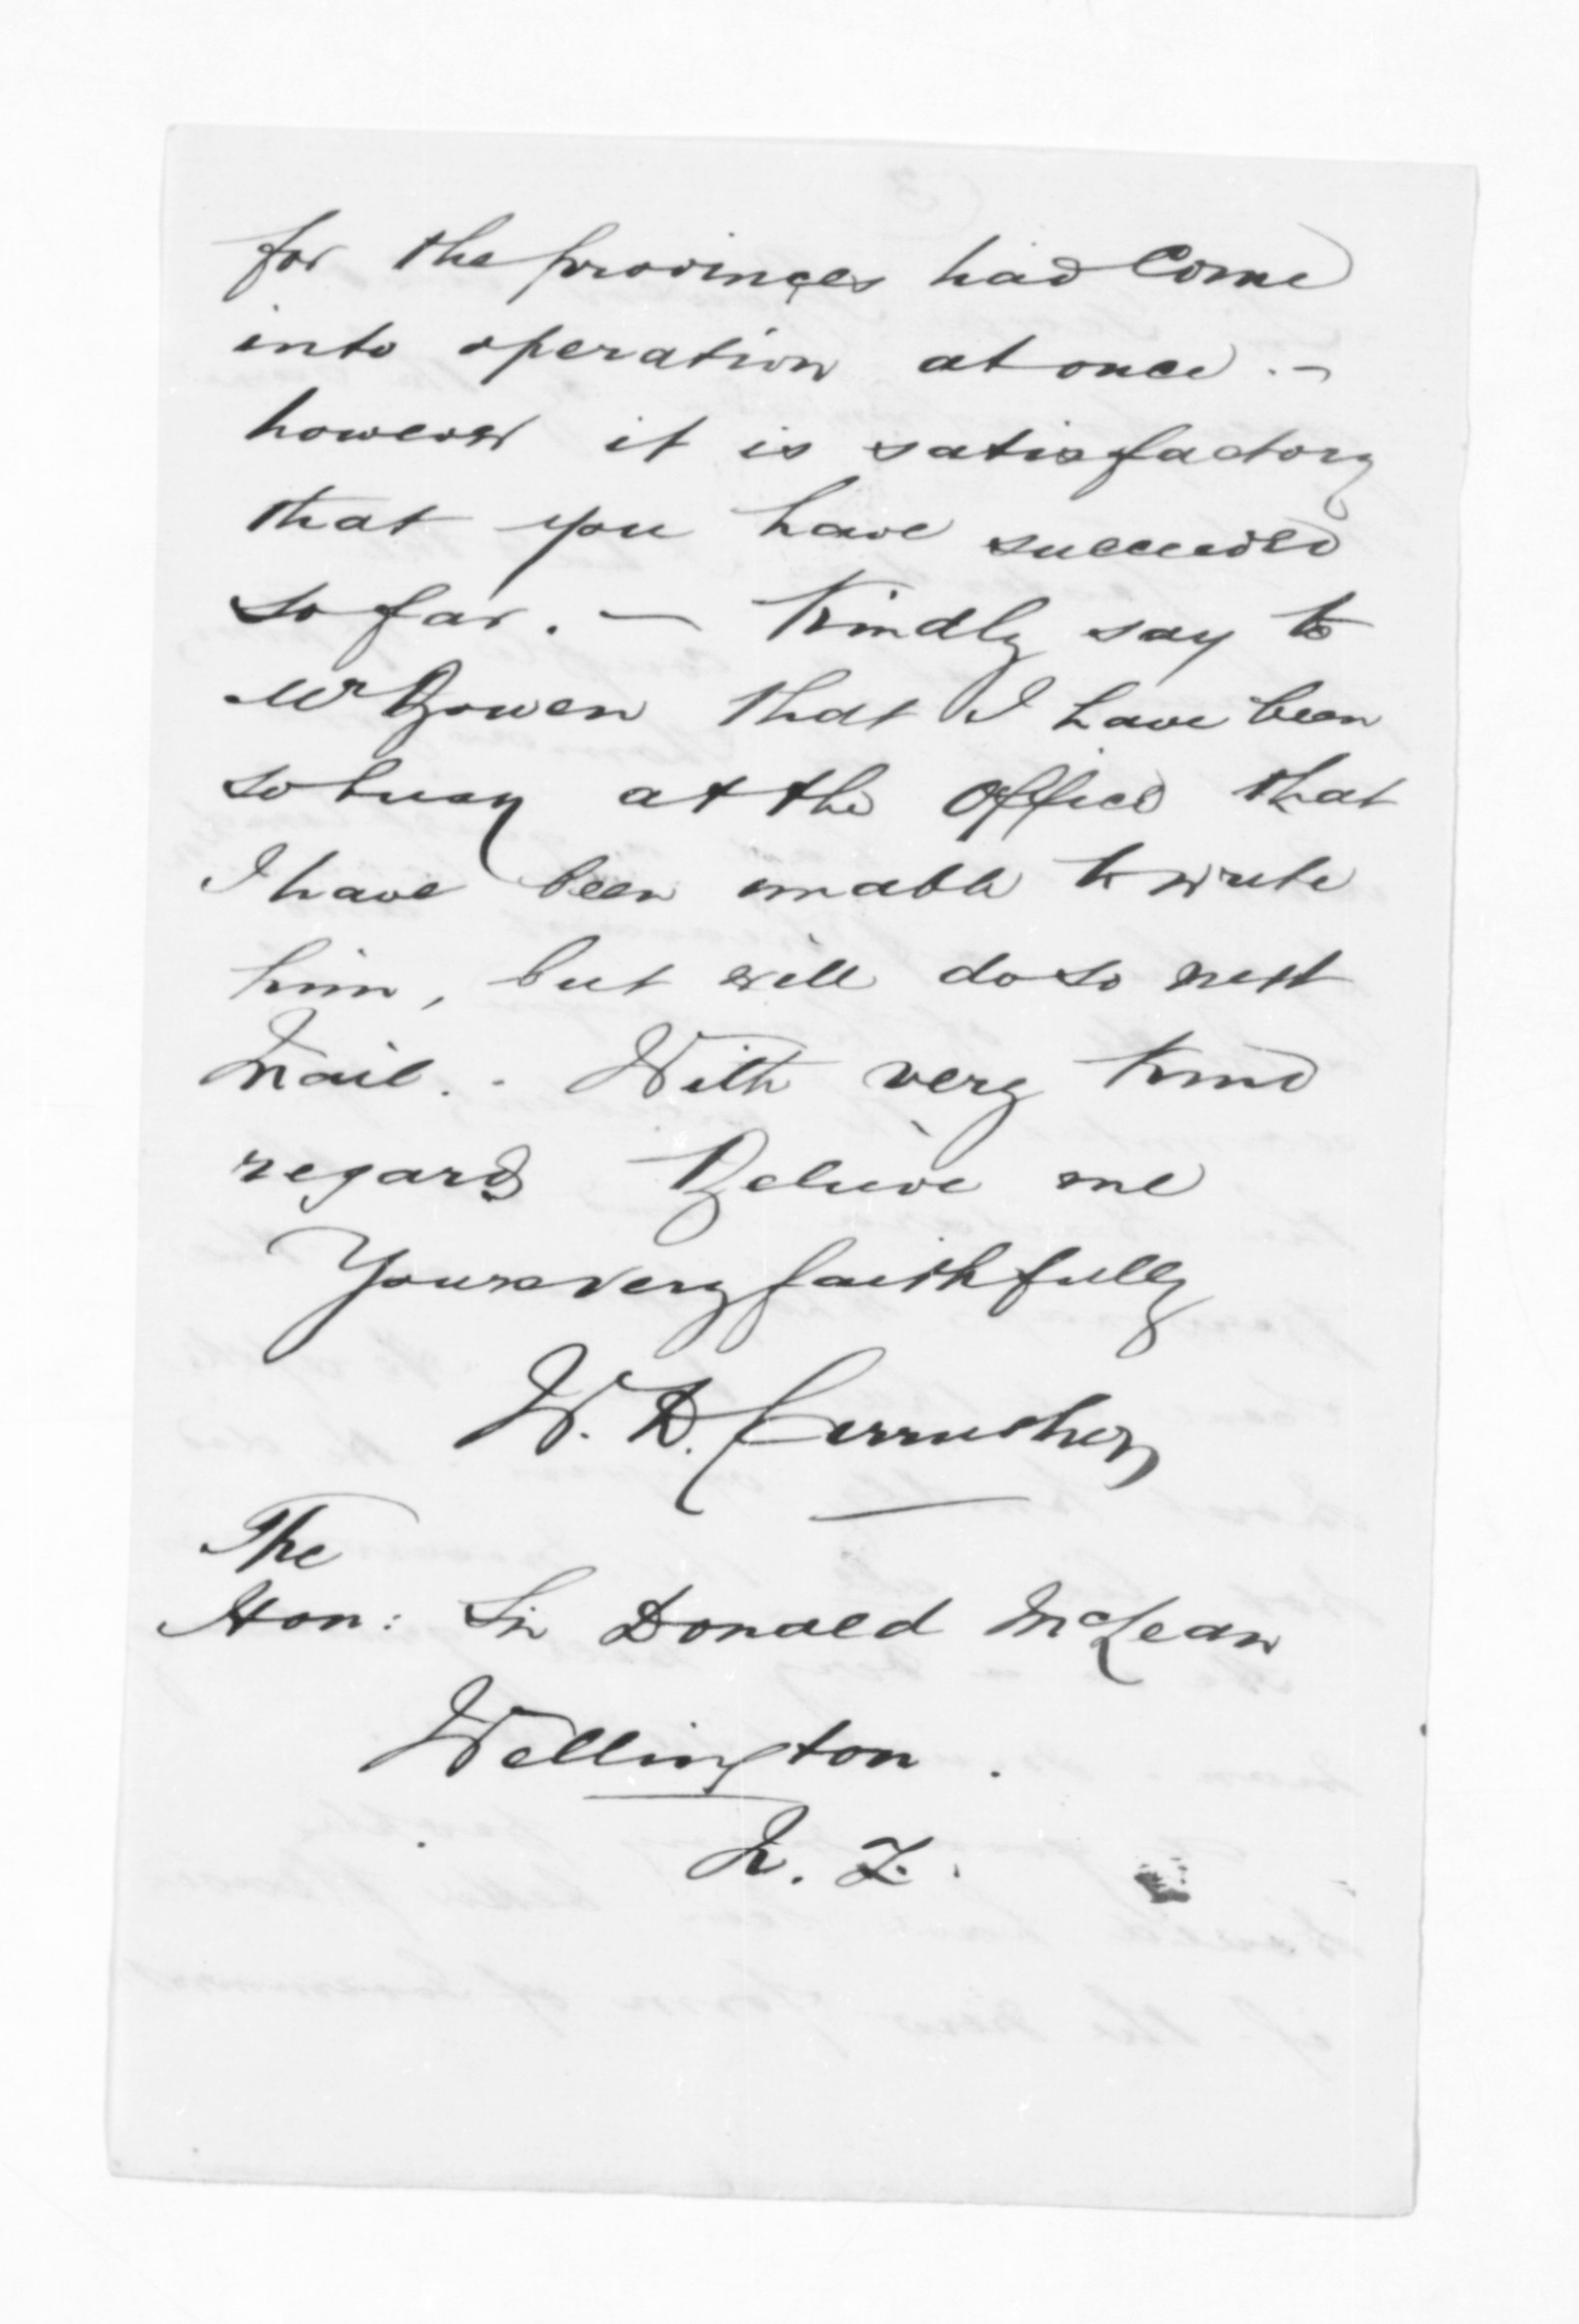 for the provinces had Come
into operation at once. -
however it is satisfactory
that you have succeeded
so far. — Kindly say to
Mr Bowen that I have been
so busy at the Office that
I have been unable to write
him, but will do so next
Mail. . With very kind
regards Believe me
Yours very faithfully
W. D. Carruthers
The
Hon: Sir Donald McLean
Wellington.
N. Z.